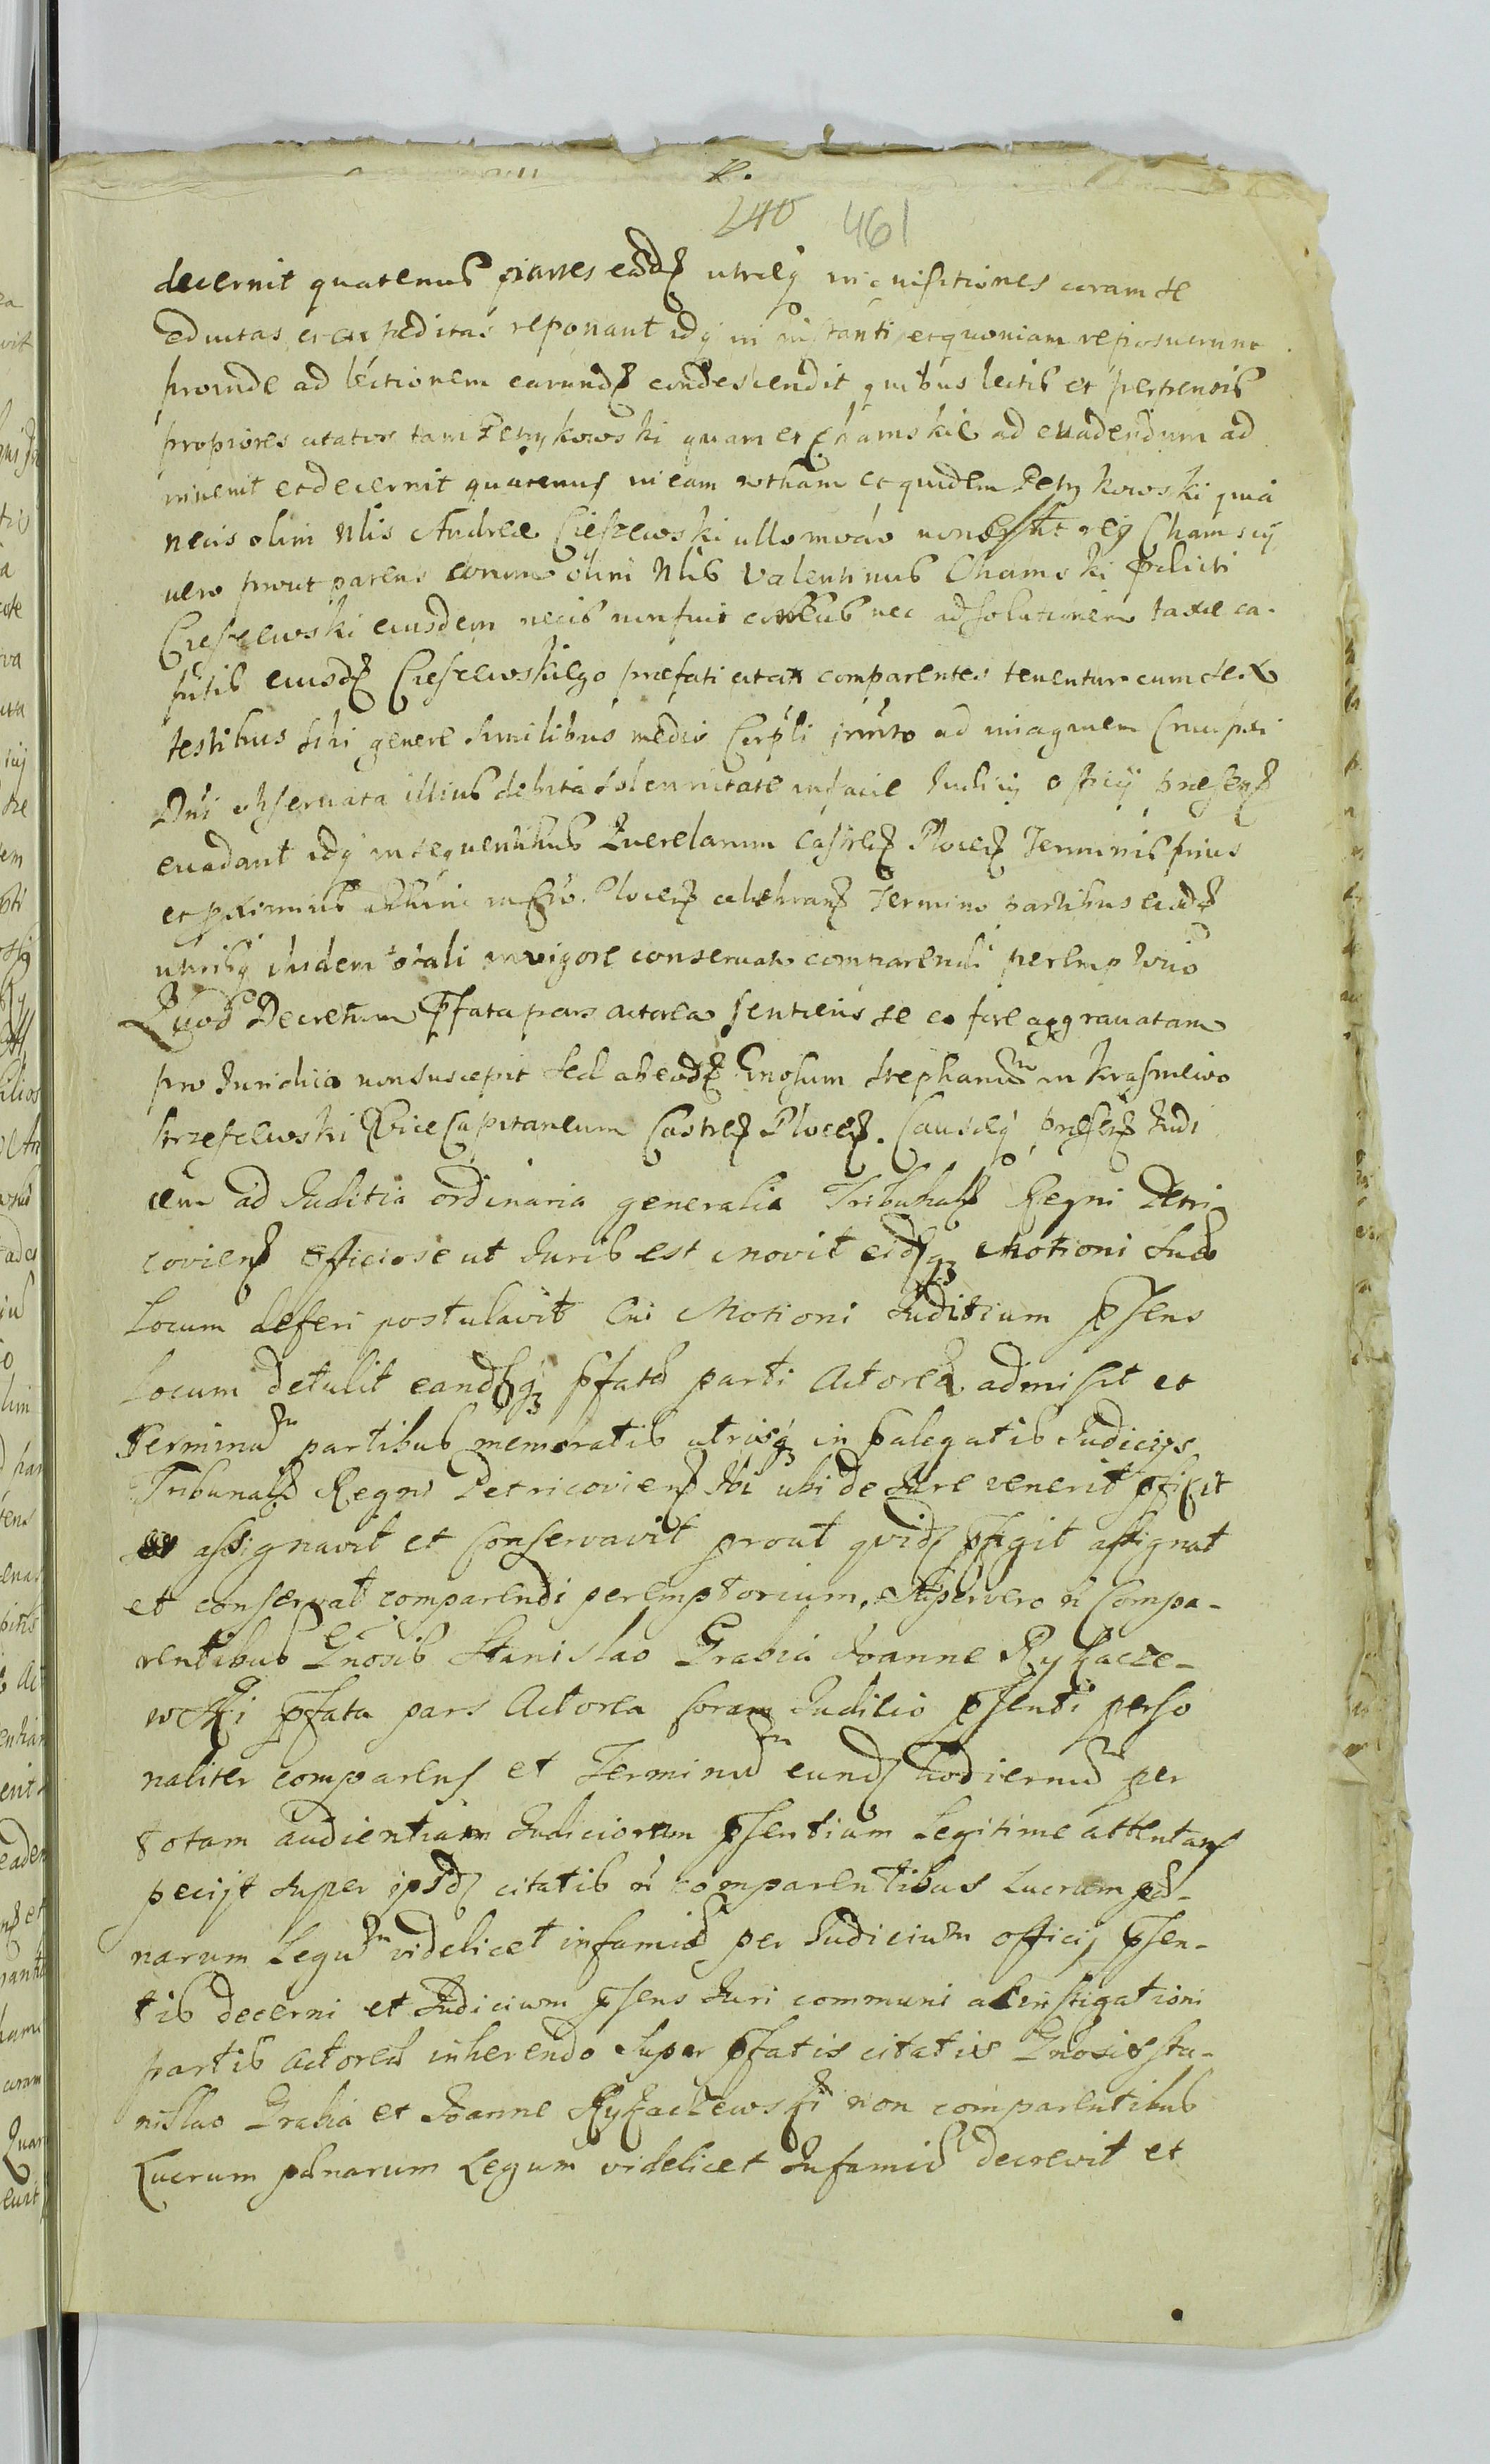 240 461
decernit quatenus partes ead utraeq inquisitiones coram se
eductas et expeditas reponant idq in instanti et quoniam reposuerunt
proinde ad lectionem earund condescendit quibus lectis et pertrensis
propiores citatos tam Petrykowski quam et Chamskie ad evadendum ad
invenit et decernit quatenus in eam rotham et quidem Petrykowski quia
necis olim Nlis Andreae Cieszewski ullo modo non est reg Chamscy
vero prout parens eorum olim Nlis Valentinus Chamski
Cieszewski eiusdem necis non fuit nec ad solutionem taxae ca-
pitis eiusd Cieszewskiego praefati citati comparentes tenentur cum sex
testibus sibi genere similibus medio Corpli jurnto ad imaginem Crucipxi
Dni observata illius debita solennitate in facie Judicij officij praesen
evadant idq in sequentibus Querelarum Castren Plocen Terminis prius
et pximius celebran Termino partibus eisd
utrisq ibidem totali in vigore conservato comparendi peremptorio
Quod Decretum pfata pars actorea sentiens se eo fore aggravatam
pro Juridico non suscepit sed ab eod Gnosum Stephanum in Krasniewo
Krzeszewski Vice Capitaneum Castren Plocen. Causaeq praesen Judi
cem ad Juditia ordinaria generalia Tribunals Regni Petri
covien officiose ut Juris est movit eidq Motioni Suae
Locum deferi postulavit Cui Motioni Juditium psens
Locum detulit eandq pfatae parti Actoreae admisit et
Terminum partibus memoratis utrisq in palegatis Judicijs
Tribunals Regni Petricovien Ibi ubi de Jure venerit pfixit
assignavit et conservavit prout quid pfigit assignat
et conservat comparendi peremptorium. Super vero n Compa-
rentibus Gnosis Stanislao Grabia Joanne Rykacze-
wski pfata pars Actorea coram Judicio psenti perso
naliter comparens et Terminum eund hodiernum per
totam audientiam Judiciorum psentium Legitime attentans
pecijt super ipsid citatis n comparentibus Lucrum pae-
narum Legum videlicet infamiae per Judicium officij psen-
tis decerni et Judicium psens Juri communi ac instigationi
partis actoreae inherendo super pfatis citatis Gnosis Sta-
nislao Grabia et Joanne Rykaczewski non comparentibus
Lucrum paenarum Legum videlicet Infamiae decrevit et